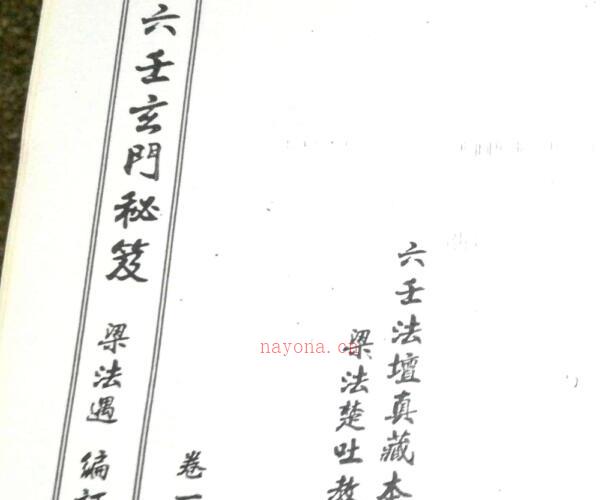 六壬法壇真藏本
梁法楚吐教
卷一
六壬玄門秘笈 梁法遇 編訂
nayona.cn